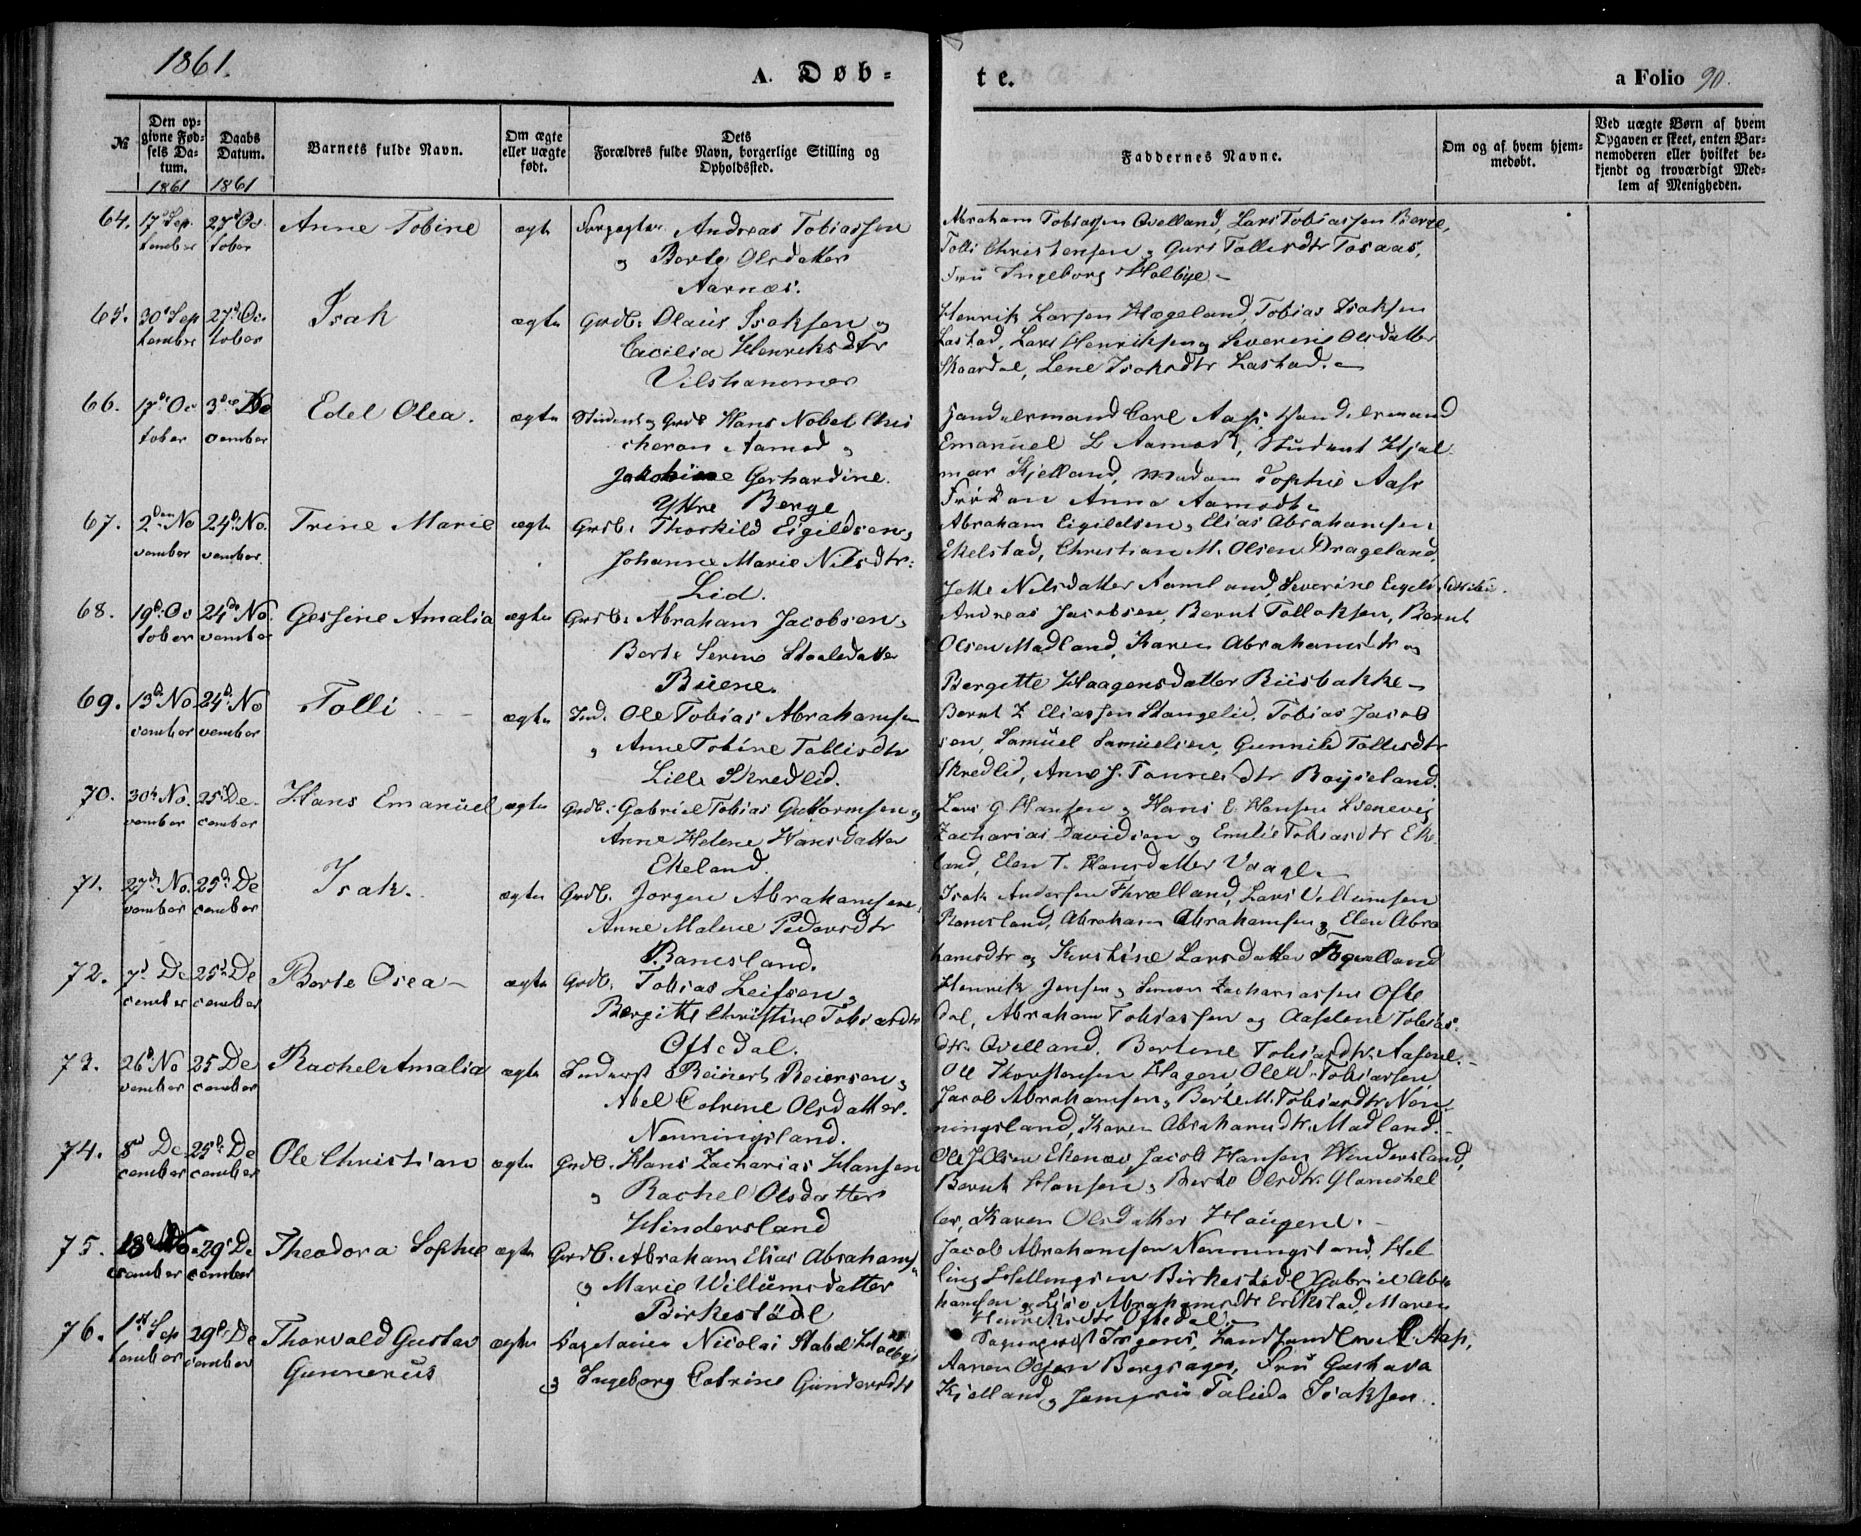 1861.
A. Døb-
te.
a Folio 90.
№
Den op-
givne Fød-
sels Da-
tum.
1861
Daabs
Datum.
1861
Barnets fulde Navn.
Om ægte
eller uægte
født.
Dets
Forældres fulde Navn, borgerlige Stilling og
Opholdssted.
Faddernes Navne.
Om og af hvem hjem-
medøbt.
Ved uægte Børn af hvem
Opgaven er skeet, enten Bar-
nemoderen eller hvilket be-
kjendt og troværdigt Med-
lem af Menigheden.
64. 17 Sep 27 Oc Anne Tobine ægte Andreas Tobiassen
tember tober og Berte Olsdatter
Aarnæs.
Abraham Tobiassen Qvelland, Lars Tobiassen Berge,
Tolli Christensen og Guri Tollisdtr Tosaas,
Fru Ingeborg Holbye
65. 30 Sep 27 Oc Isak ægte Grdb. Olaus Isaksen og
tember tober Cecilia Henriksdtr
Vilshammer
Henrik Larsen Hægeland, Tobias Isaksen
Lastad, Lars Henriksen og Severine Olsdatter
Skaardal, Lene Isaksdtr Lastad.
66. 17 Oc 3 De Edel Olea. ægte Student og Grdb Hans Nobel
tober cember Aamod og
Jakobine Gerhardine
Yttre Berge
Handelsmand Carl Aas, Handelsmand
Emanuel L Aamodt, Student Hjal-
mar Kjelland, Madam Sophie Aas
Frøken Anna Aamodt
67. 2den No 24 No. Trine Marie ægte Grdb. Thorkild Eigildsen og
vember vember. Johanne Marie Nilsdtr.
Lid.
Abraham Eigildsen, Elias Abrahamsen
Ekelstad, Christian M. Olsen Drageland,
Jette Nilsdatter Aamland, Severine
68. 19 Oc 24de No. Gessine Amalia ægte Grdb. Abraham Jacobsen og
tober vember Berte Serine Staalesdatter
Buene.
Andreas Jacobsen, Bernt Tollaksen, Bernt
Olsen Madland, Karen Abrahamsdtr og
Bergitte Haagensdatter Riisbakke
69. 13 No 24 No Tolli ægte Ind. Ole Tobias Abrahamsen
vember vember og Anne Tobine Tollisdtr
Lille Skredlid.
Bernt Z Eliassen Stangelid, Tobias Jacob
sen, Samuel Samuelsen, Gunnild Tollisdtr
Skredlid, Anne J. Tonnesdtr Røyseland.
70. 30 No. 25 De. Hans Emanuel ægte Grdb. Gabriel Tobias Guttormsen og
vember cember Anne Helene Hansdatter
Ekeland.
Lars G Hansen og Hans E. Hansen
Zacharias Davidsen og Emilie Tobiasdtr Eke
land, Elen T. Hansdatter Vragl
71. 27 No. 25 De Isak. ægte Grdb. Jørgen Abrahamsen,
vember cember Anne Malene Pedersdtr
Ramsland.
Isak Andersen Thrælland, Lars Villumsen
Ramsland, Abraham Abrahamsen og Elen Abra
hamsdtr og Kirstine Larsdatter
72. 7 De 25 De Berte Osea ægte Grdb. Tobias Leifsen og
cember cember Bergitte Christine Tobiasdtr
Oftedal.
Henrik Jensen og Simon Zachariassen Ofte
dal, Abraham Tobiassen og Aaselene Tobias-
dtr. Qvelland. Bertine Tobiasdtr.
73. 26 No 25 De Rachel Amalia ægte Inderst Reinert Reiersen og
vember cember Abel Cotrine Olsdatter.
Nenningsland.
Ole Thorstensen Hagen, Ole Tobiassen
Jacob Abrahamsen, Berte M. Tobiasdtr Nen-
ningsland, Karen Abrahamsdtr. Madland.
74. 8 De 25 De Ole Christian ægte Grdb. Hans Zacharias Hansen
cember cember og Rachel Olsdatter
Hindersland
Ole Olsen Ekenæs, Jacob Hansen Hindersland,
Bernt Hansen, Berte Olsdtr. Glamskel
ler, Karen Olsdatter Haugene.
75. 18 29 De Theodora Sophie ægte Grdb. Abraham Elias Abrahams
cember cember og Marie Willumsdatter
Birkestødl
Jacob Abrahamsen Nenningsland, Hel
ling Hellingsen Birkestødl Gabriel Abra
hamsen og Lise Abrahamsdtr Erikstad, Maren
Henriksdtr Oftedal
76. 1st Sep 29 De Thorvald Gustav ægte Capitainen Nicolai Stabel Holbye
tember cember Gunnerus og Ingeborg Cotrine Gundersdtr
Landhandler M. Aas,
Aanen Olsen Bergsager, Fru Gustava
Kjelland, Jomfru Talida Isaksen.